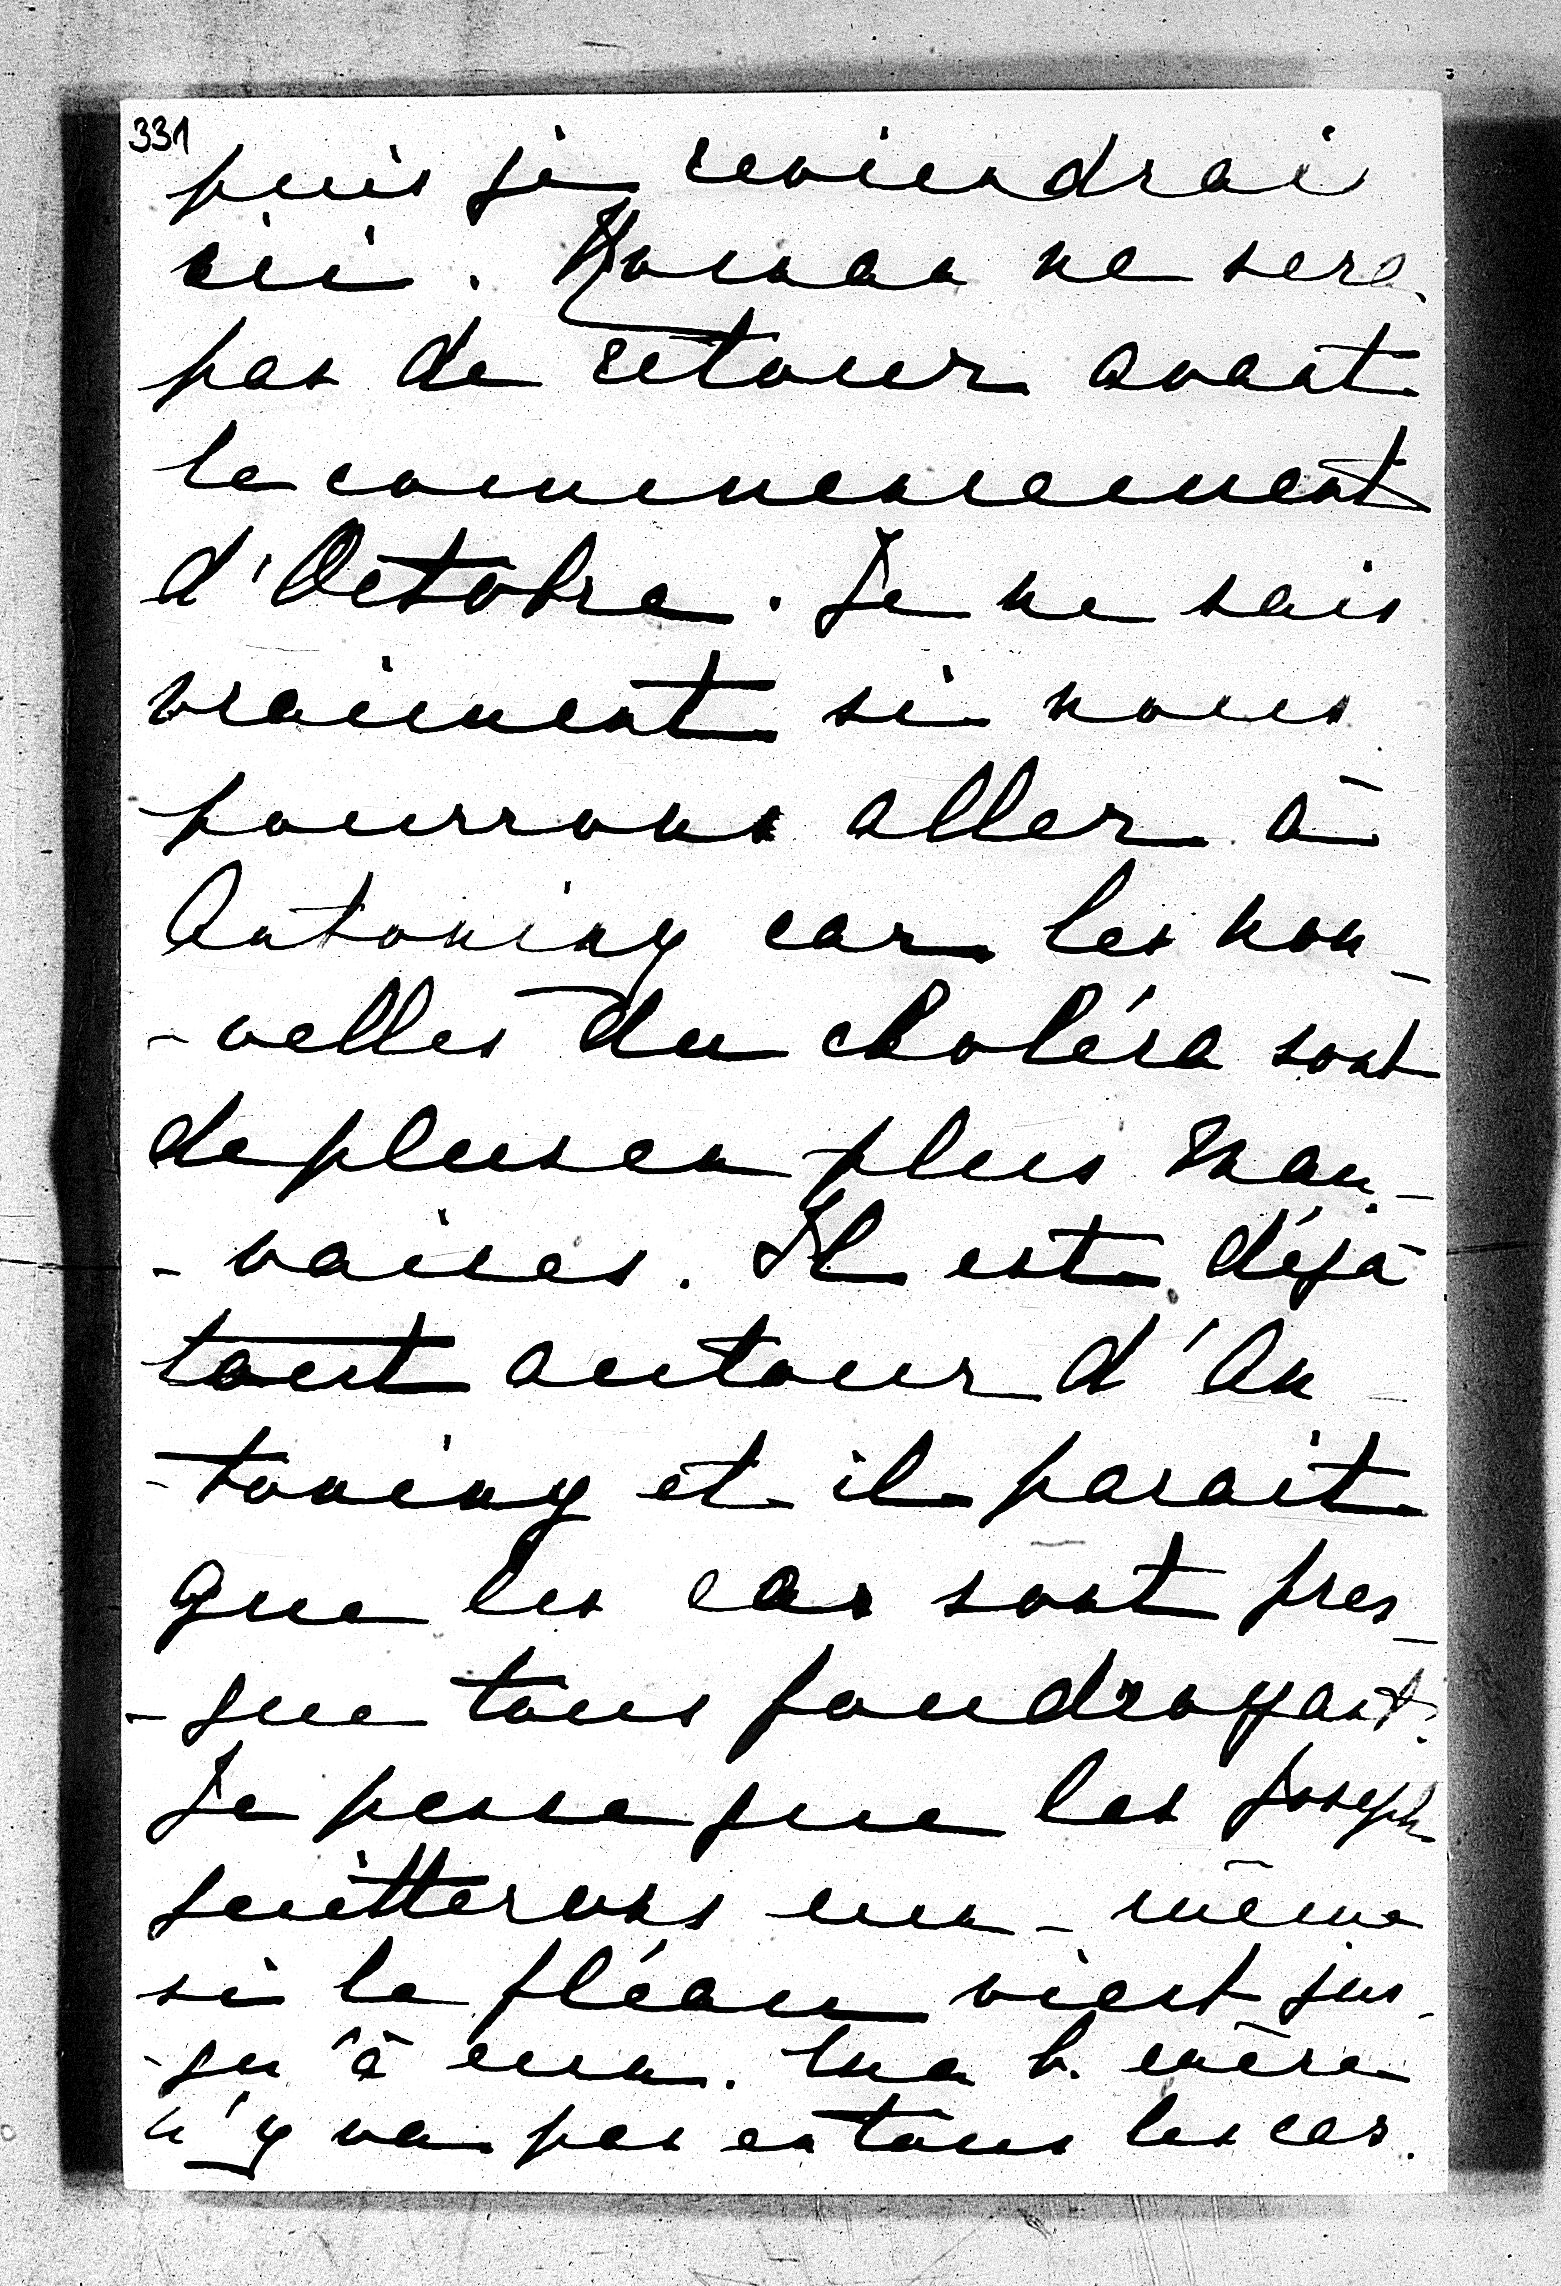 331
puis je reviendrai
ici. Roman ne sera
pas de retour avant
le commencement
d'Octobre. Je ne sais
vraiment si nous
pourrons aller à
Antoniny car les nou-
-velles du choléra sont
de plus en plus mau-
-vaises. Il est déjà
tout autour d'An-
-toniny et il parait
que les cas sont pres-
-que tous foudroyant.
Je pense que les Joseph
quitterons eux-même
si le fléau vient jus-
-qu'à eux. Ma b. mère
n'y va pas en tous les cas.